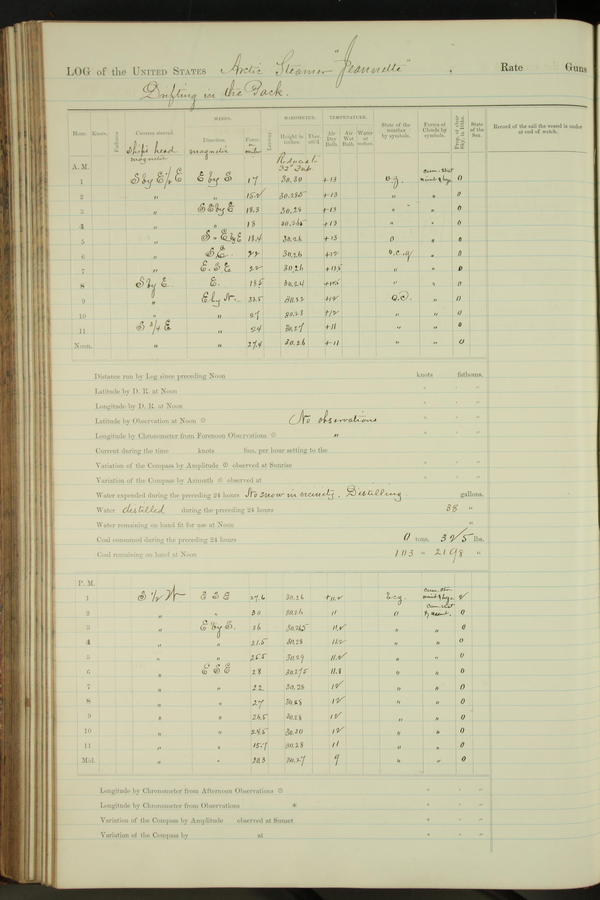 LOG of the UNITED STATES Arctic Steamer "Jeannette", Rate Guns
Drifting in the Pack.
WINDS. BAROMETER. TEMPERATURE.
Hour. Knots. Fathoms. Courses steered. Direction. Force Leeway. Height in inches. Ther. att'd. Air Dry Bulb. Air Wet Bulb. Water at surface. State of the weather by symbols. Forms of Clouds by symbols. State of the Sea. Record of the sail the vessel is under at end of watch.
Ship's head magnetic magnetic Reduced to 32°
A. M.
1 S by E ½ E E by S 17 30.30 +13 0
2 " " 30.285 +13 " " 0
3 " SE by E 18.3 30.28 +13 " " 0
4 " " 18 +13 " " 0
5 " 18.4 30.26 +13 0 " 0
6 " 22 30.26 +12 o.c.q. " 0
7 " E.S.E 22 30.26 " " 0
8 S by E E. 30.24 " " 0
9 " E by N. 30.22 +12 o.c. " 0
10 " " 27 30.23 +12 " " 0
11 S ¾ E " 24 30.27 +11 " " 0
Noon. " " 27.4 30.26 +11 " " 0
Distance run by Log since preceding Noon knots fathoms.
Latitude by D. R. at Noon
Longitude by D. R. at Noon
Latitude by Observation at Noon No observations
Longitude by Chronometer from Forenoon Observations "
Current during the time knots fms. per hour setting to the
Variation of the Compass by Amplitude observed at Sunrise
Variation of the Compass by Azimuth observed at
Water expended during the preceding 24 hours No snow in vicinity. Distilling gallons.
Water distilled during the preceding 24 hours 38 "
Water remaining on hand fit for use at Noon "
Coal consumed during the preceding 24 hours 0 tons, 325 lbs.
Coal remaining on hand at Noon 1113 " 2198 "
P. M.
1 S ½ W E S E 27.6 30.26
2 " " 30 30.26 11 0
3 " E by S. 26 30.265 11.2 " " 0
4 " " 21.5 30.28 " " 0
5 " " 26.5 30.29 11.2 " " 0
6 " E S E 28 30.275 11.8 " " 0
7 " " 22 30.28 12 " " 0
8 " " 27 12 " " 0
9 " " 26.5 30.28 12 " " 0
10 " " 28.5 30.30 12 " " 0
11 " " 15.7 30.28 11 " " 0
Mid. " " 20.3 30.27 9 " " 0
Longitude by Chronometer from Afternoon Observations
Longitude by Chronometer from Observations *
Variation of the Compass by Amplitude observed at Sunset
Variation of the Compass by at